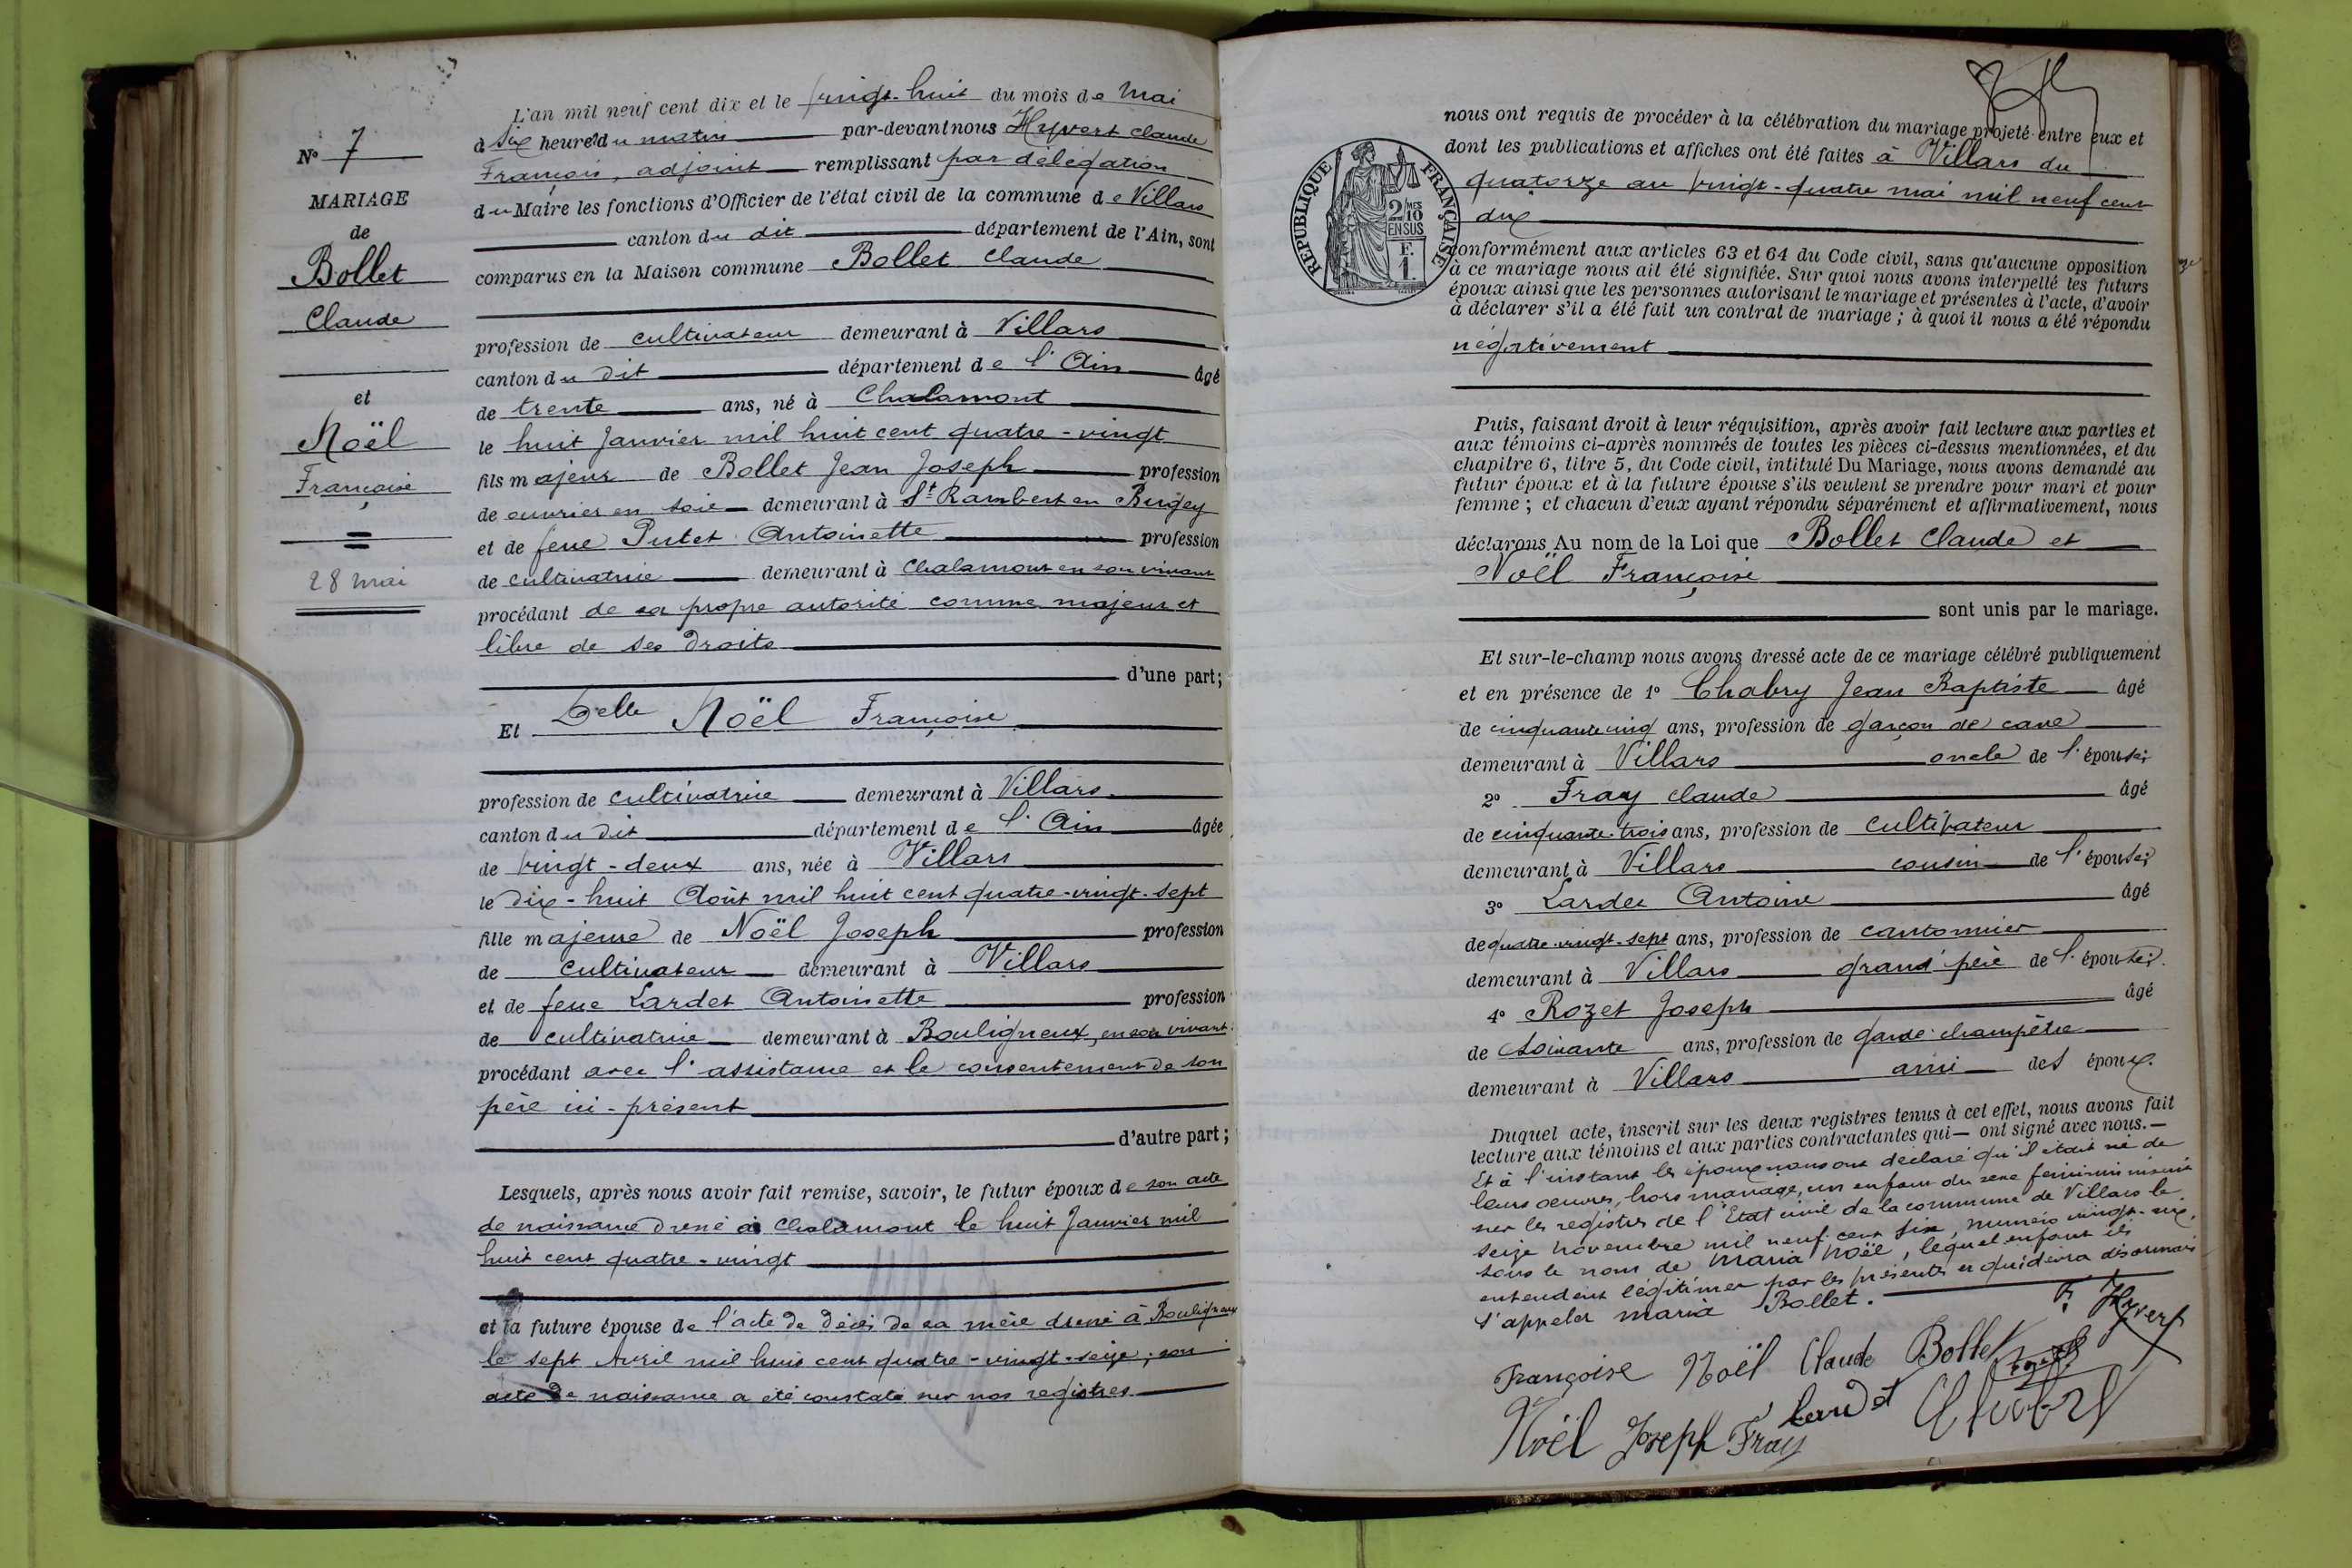 L'an mil neuf cent dix et le vingt-huit du mois de Mai
à six heures du matin par-devant nous Hyvert Claude
François, adjoint remplissant par délégation
du Maire les fonctions d'Officier de l'état civil de la commune de Villars
canton du dit département de l'Ain, sont
comparus en la Maison commune Bollet Claude
profession de cultivateur demeurant à Villars
canton du dit département de l'Ain âgé
de trente ans, né à Chalamont
le huit Janvier mil huit cent quatre-vingt
fils majeur de Bollet Jean Joseph profession
de ouvrier en soie demeurant à St Rambert en Bugey
et de feue Putet Antoinette profession
de cultivatrice demeurant à Chalamont en son vivant
procédant de sa propre autorité comme majeur et
libre de ses droits
d'une part;
Et Delle Noël Françoise
profession de cultivatrice demeurant à Villars
canton du dit département de l'Ain âgée
de vingt-deux ans, née à Villars
le dix-huit Août mil huit cent quatre-vingt-sept
fille majeure de Noël Joseph profession
de cultivateur demeurant à Villars
et de feue Lardet Antoinette profession
de cultivatrice demeurant à Bouligneux, en son vivant
procédant avec l'assistance et le consentement de son
père ici-présent
d'autre part;
Lesquels, après nous avoir fait remise, savoir, le futur époux de son acte
de naissance dressé à Chalamont le huit Janvier mil
huit cent quatre-vingt
et la future épouse de l'acte de décès de sa mère dressé à Bouligneux
le sept Avril mil huit cent quatre-vingt-seize; son
acte de naissance a été constaté sur nos registres
N° 7
MARIAGE
de
Bollet
Claude
et
Noël
Françoise
28 mai
nous ont requis de procéder à la célébration du mariage projeté entre eux et
dont les publications et affiches ont été faites à Villars du
quatorze au vingt-quatre mai mil neuf cent
dix
conformément aux articles 63 et 64 du Code civil, sans qu'aucune opposition
à ce mariage nous ait été signifiée. Sur quoi nous avons interpellé les futurs
époux ainsi que les personnes autorisant le mariage et présentes à l'acte, d'avoir
à déclarer s'il a été fait un contrat de mariage; à quoi il nous a été répondu
négativement
Puis, faisant droit à leur réquisition, après avoir fait lecture aux parties et
aux témoins ci-après nommés de toutes les pièces ci-dessus mentionnées, et du
chapitre 6, titre 5, du Code civil, intitulé Du Mariage, nous avons demandé au
futur époux et à la future épouse s'ils veulent se prendre pour mari et pour
femme; et chacun d'eux ayant répondu séparément et affirmativement, nous
déclarons Au nom de la Loi que Bollet Claude et
Noël Françoise
sont unis par le mariage.
Et sur-le-champ nous avons dressé acte de ce mariage célébré publiquement
et en présence de 1° Chabry Jean Baptiste âgé
de cinquante cinq ans, profession de garçon de cave
demeurant à Villars oncle de l'épouse;
2° Fray Claude âgé
de cinquante-trois ans, profession de cultivateur
demeurant à Villars cousin de l'épouse;
3° Lardet Antoine âgé
de quatre-vingt-sept ans, profession de cantonnier
demeurant à Villars grand père de l'épouse;
4° Rozet Joseph âgé
de soixante ans, profession de garde-champêtre
demeurant à Villars ami des époux.
Duquel acte, inscrit sur les deux registres tenus à cet effet, nous avons fait
lecture aux témoins et aux parties contractantes qui ont signé avec nous.
Et à l'instant les époux nous ont déclaré qu'il était né de
leurs oeuvres, hors mariage, un enfant du sexe féminin inscrit
sur les registres de l'Etat civil de la commune de Villars le
seize novembre mil neuf cent six, numéro vingt-six,
sous le nom de Maria Noël, lequel enfant ils
entendent légitimer par les présentes et qui devra désormais
s'appeler Maria Bollet.
F. Hyvert
Françoise Noël Claude Bollet Rozet
Noël Joseph Fray Lardet Chabry
RÉPUBLIQUE FRANÇAISE
2/10 MES
EN SUS
F.
1.